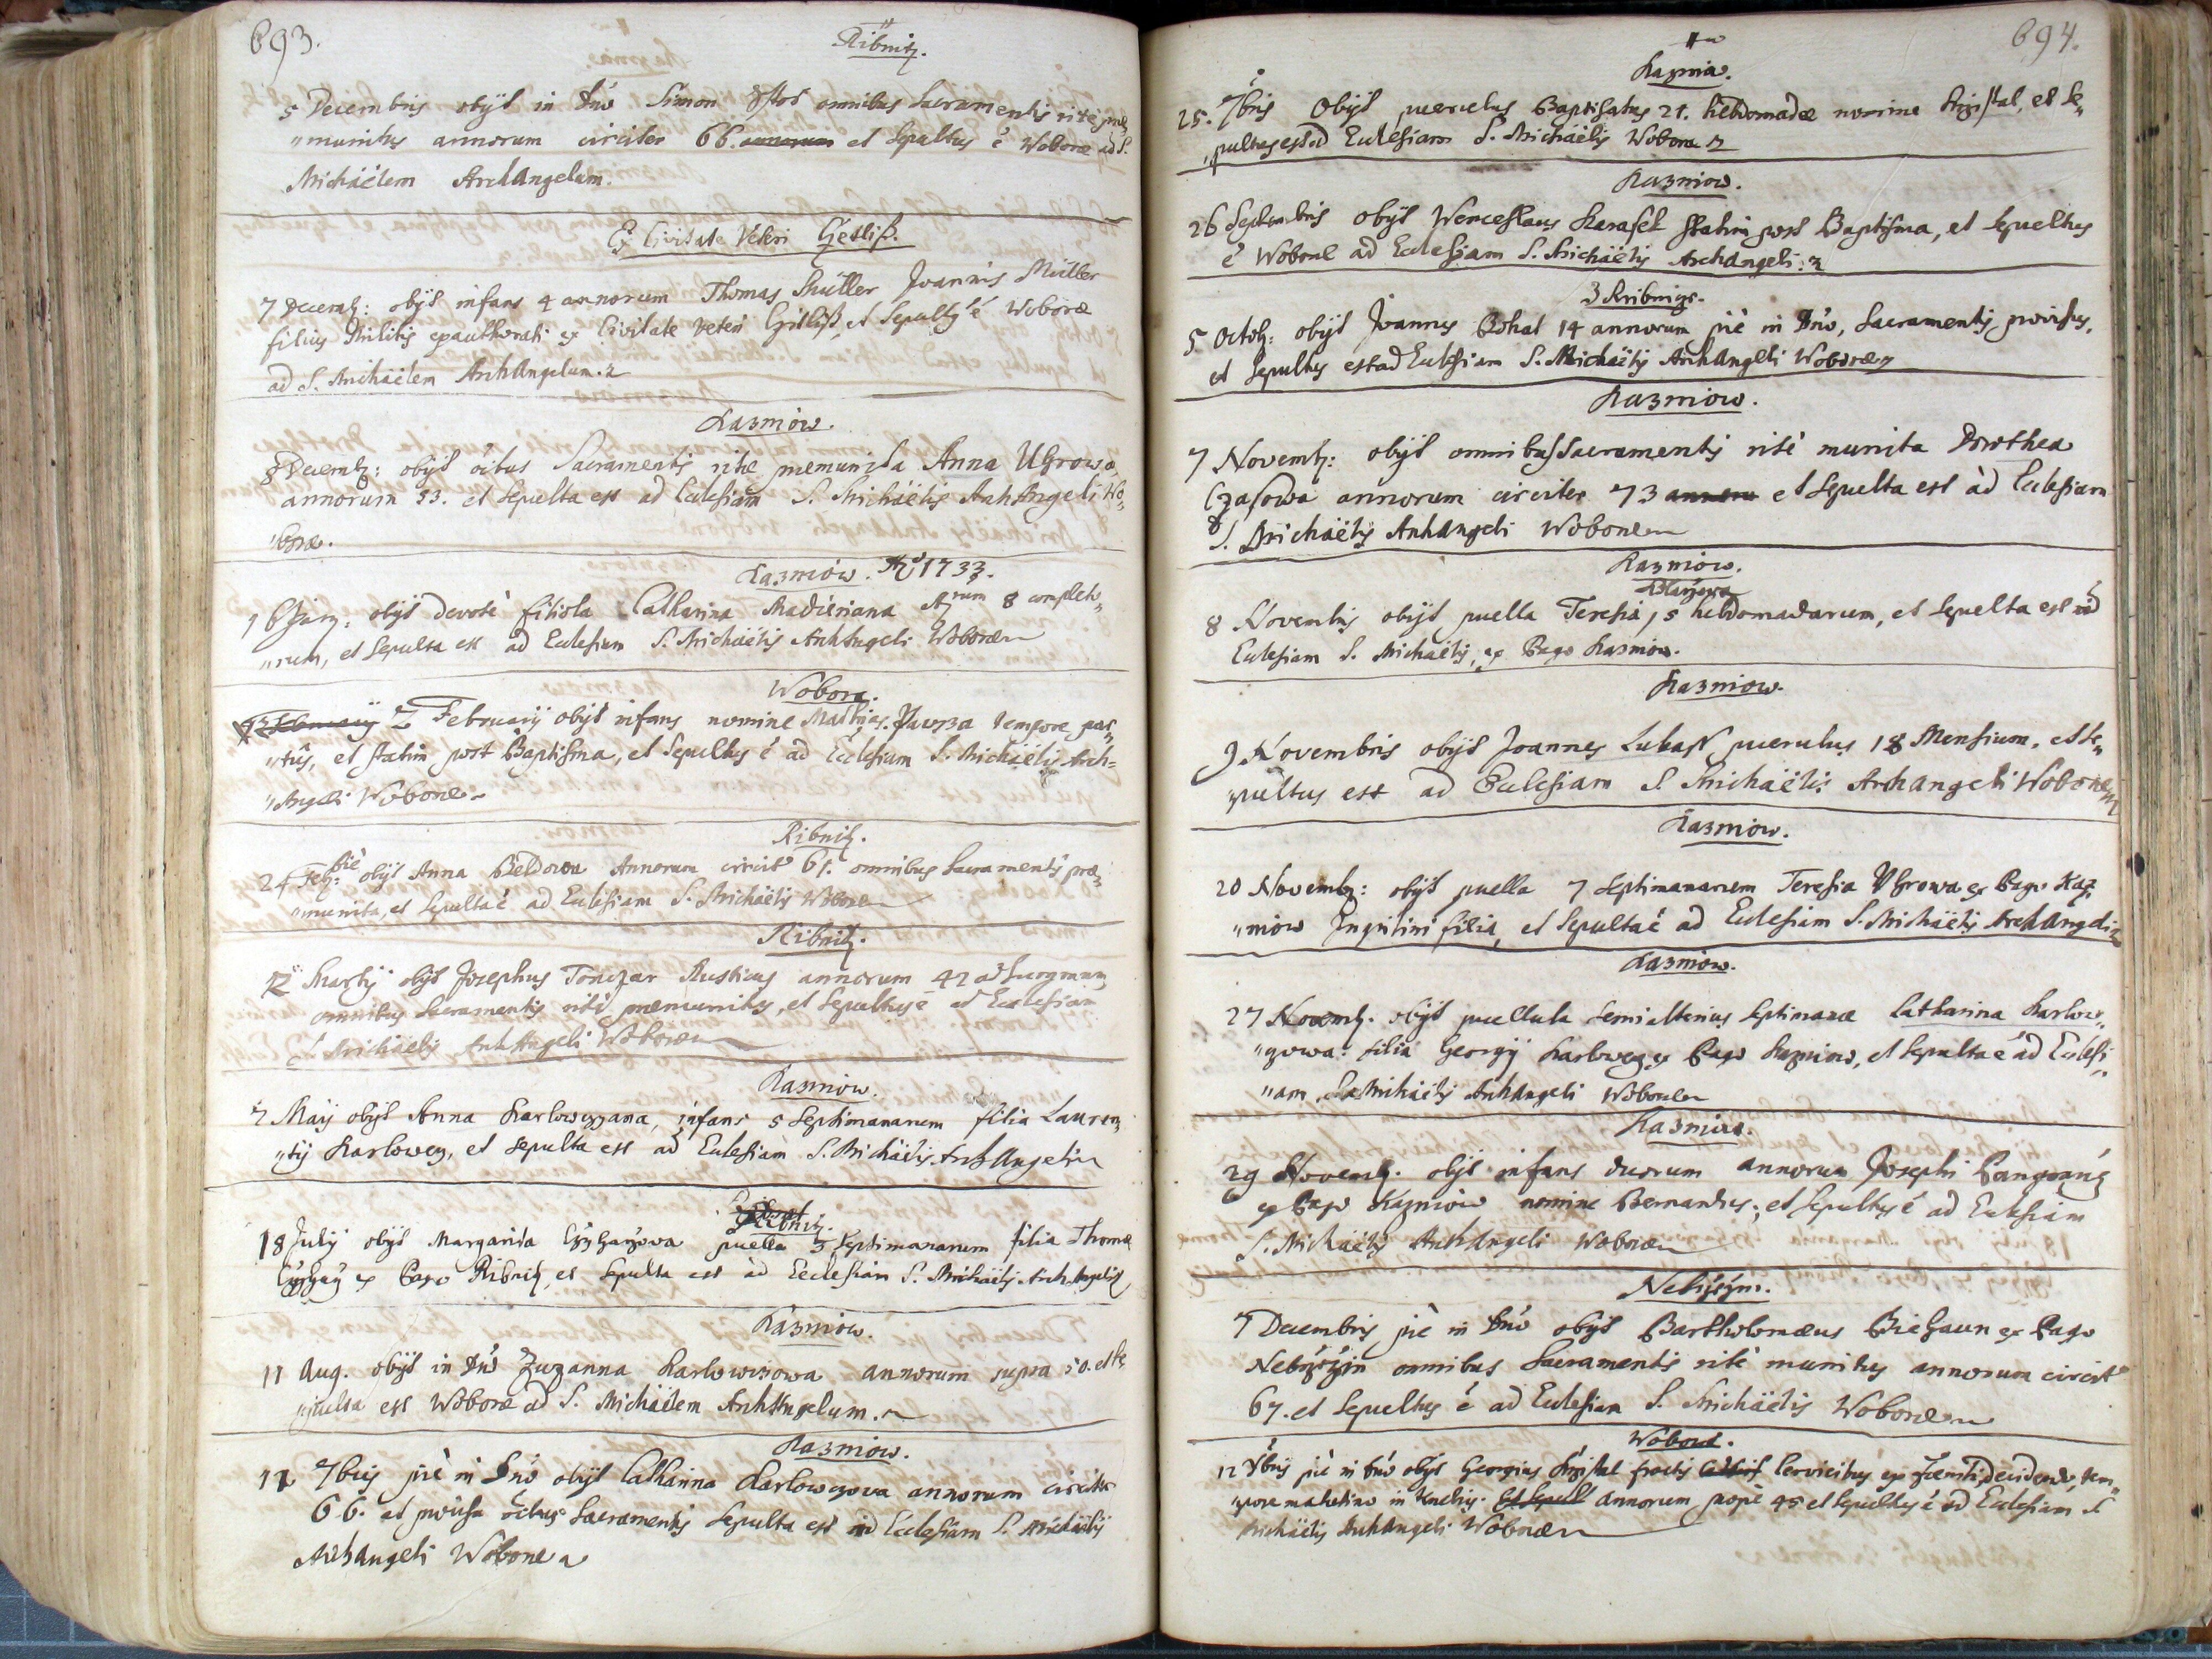 693.
Ribnitz.
5 Decembris obijt in Dno Simon omnibus Sacramentis rite præ„
„munitus annorum circiter 66. annorum et Sepultus è Woboræ ad S.
Michäelem ArchAngelum.
Ex Civitate Veteri Getliß.
7 Decemb: obijt infans 4 annorum Thomas Müller Joannis Müller
filius Militis exauthorati ex Civitate Veteri et Sepultus è Woboræ
ad S. Michäelem ArchAngelum.
Kazniow.
8 Decemb: obijt Sacramentis rite premunita Anna Uhrowa
annorum 53. et Sepulta est ad Ecclesiam S. Michäelis ArchAngeli Wo„
„boræ.
Kazniow. Aõ 1733.
obijt devotè filiola Catharina 8 completo„
„rum, et Sepulta est ad Ecclesiam S. Michäelis ArchAngeli Woboræ
Wobora.
Februarij obijt infans nomine Mathias tempore par„
„tûs, et statim post Baptisma, et Sepultus è ad Ecclesiam S. Michäelis Arch=
„Angeli Woboræ
Ribnitz.
24 Feb: piè obijt Anna Beldowa Annorum circit 61. omnibus Sacramentis præ„
„munita, et Sepulta è ad Ecclesiam S. Michäelis Woboræ
Ribnitz.
Martij obijt Josephus Tonczar Rusticus annorum 42
omnibus Sacramentis ritè præmunitus, et Sepultus è ad Ecclesiam
S. Michäelis ArchAngeli Woboræ
Kazniow.
7 Maij obijt Anna Karlowczana, infans 5 Septimanarum filia Lauren„
„tij Karlowez, et sepulta est ad Ecclesiam S. Michäelis ArchAngeli
Ribnitz.
18 Julij obijt Margarida puella 3 Septimanarum filia Thomæ
ex Pago Ribnitz, et Sepulta est ad Ecclesiam S. Michäelis ArchAngeli
Kazniow.
11 Aug. obijt in Dno Zuzanna Karlowczowa annorum supra 50. et Se„
„pulta est Woboræ ad S. Michäelem ArchAngelum.
Kazniow.
12 7bris piè in Dno obijt Catharina Karlowczowa annorum circiter
66. et provisa Sacramentis Sepulta est ad Ecclesiam S. Michäelis
ArchAngeli Woboræ
694.
Kazniow.
25. 7bris Obijt puerulus Baptisatus 21. hebdomadæ nomine Krzistal, et Se„
„pultus est ad Ecclesiam S. Michäelis Woboræ
Kazniow.
26 Septembris obijt Wenceslaus Karasek statim post Baptisma, et Sepultus
è Woboræ ad Ecclesiam S. Michäelis Archangeli.
5 Octob: obijt Joannes Bohat 14 annorum piè in Dno, Sacramentis provisus,
et Sepultus est ad Ecclesiam S. Michäelis ArchAngeli Woboræ
Kazniow.
7 Novemb: obijt omnibus Sacramentis ritè munita Dorothea
Czasowa annorum circiter 73 et Sepulta est ad Ecclesiam
S. Michäelis ArchAngeli Woboræ
Kazniow.
8 Novembris obijt puella Teresia, 5 hebdomadarum, et Sepulta est ad
Ecclesiam S. Michäelis, ex Pago Kazniow.
Kazniow.
9 Novembris obijt Joannes Lukass puerulus 18 Mensium, et Se„
„pultus est ad Ecclesiam S Michäelis Archangeli Woboræ
Kazniow.
20 Novemb: obijt puella 7 Septimanarum Teresia Uhrowa ex Pago Kaz„
„niow Inquilini filia, et Sepulta è ad Ecclesiam S. Michäelis ArchAngeli
Kazniow.
27 Novemb. obijt puellula Semialterius Septimanæ Catharina Karlow„
„czowa: filia Georgij Karlowez ex Pago Kazniow, et Sepulta è ad Ecclesi„
„am S. Michäelis ArchAngeli Woboræ
Kazniow.
29 Novemb. obijt infans duorum annorum Josephi
ex Pago Kazniow nomine Bernardus, et Sepultus è ad Ecclesiam
S. Michäelis ArchAngeli Woboræ
Nebrzezin.
7 Decembris piè in Dno obijt Bartholomæus Biehaun ex Pago
Nebrzezin omnibus Sacramentis ritè munitus annorum circit
67. et Sepultus è ad Ecclesiam S. Michäelis Woboræ
Wobora.
12 piè in Dno obijt Georgius Krzistal fractis Cervicibus ex decidendo, tem„
„pore matutino in annorum propè 45 et Sepultus è ad Ecclesiam S
Michäelis ArchAngeli Woboræ